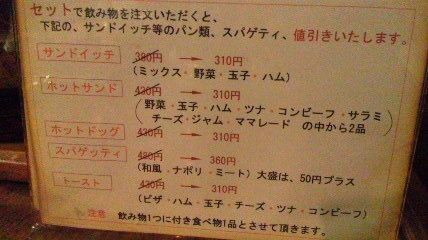 セットで飲み物を注文いただくと、
下記の、サンドイッチ等のパン類、スパゲティ、値引きいたします。
サンドイッチ 380円 → 310円
(ミックス・野菜・玉子・ハム)
ホットサンド 430円 → 310円
(野菜・玉子・ハム・ツナ・コンビーフ・サラミ
チーズ・ジャム・ママレード の中から2品)
ホットドッグ 430円 → 310円
スパゲッティ 480円 → 360円
(和風・ナポリ・ミート) 大盛は、50円プラス
トースト 430円 → 310円
(ピザ・ハム・玉子・チーズ・ツナ・コンビーフ)
注意 飲み物1つに付き食べ物1品とさせて頂きます。